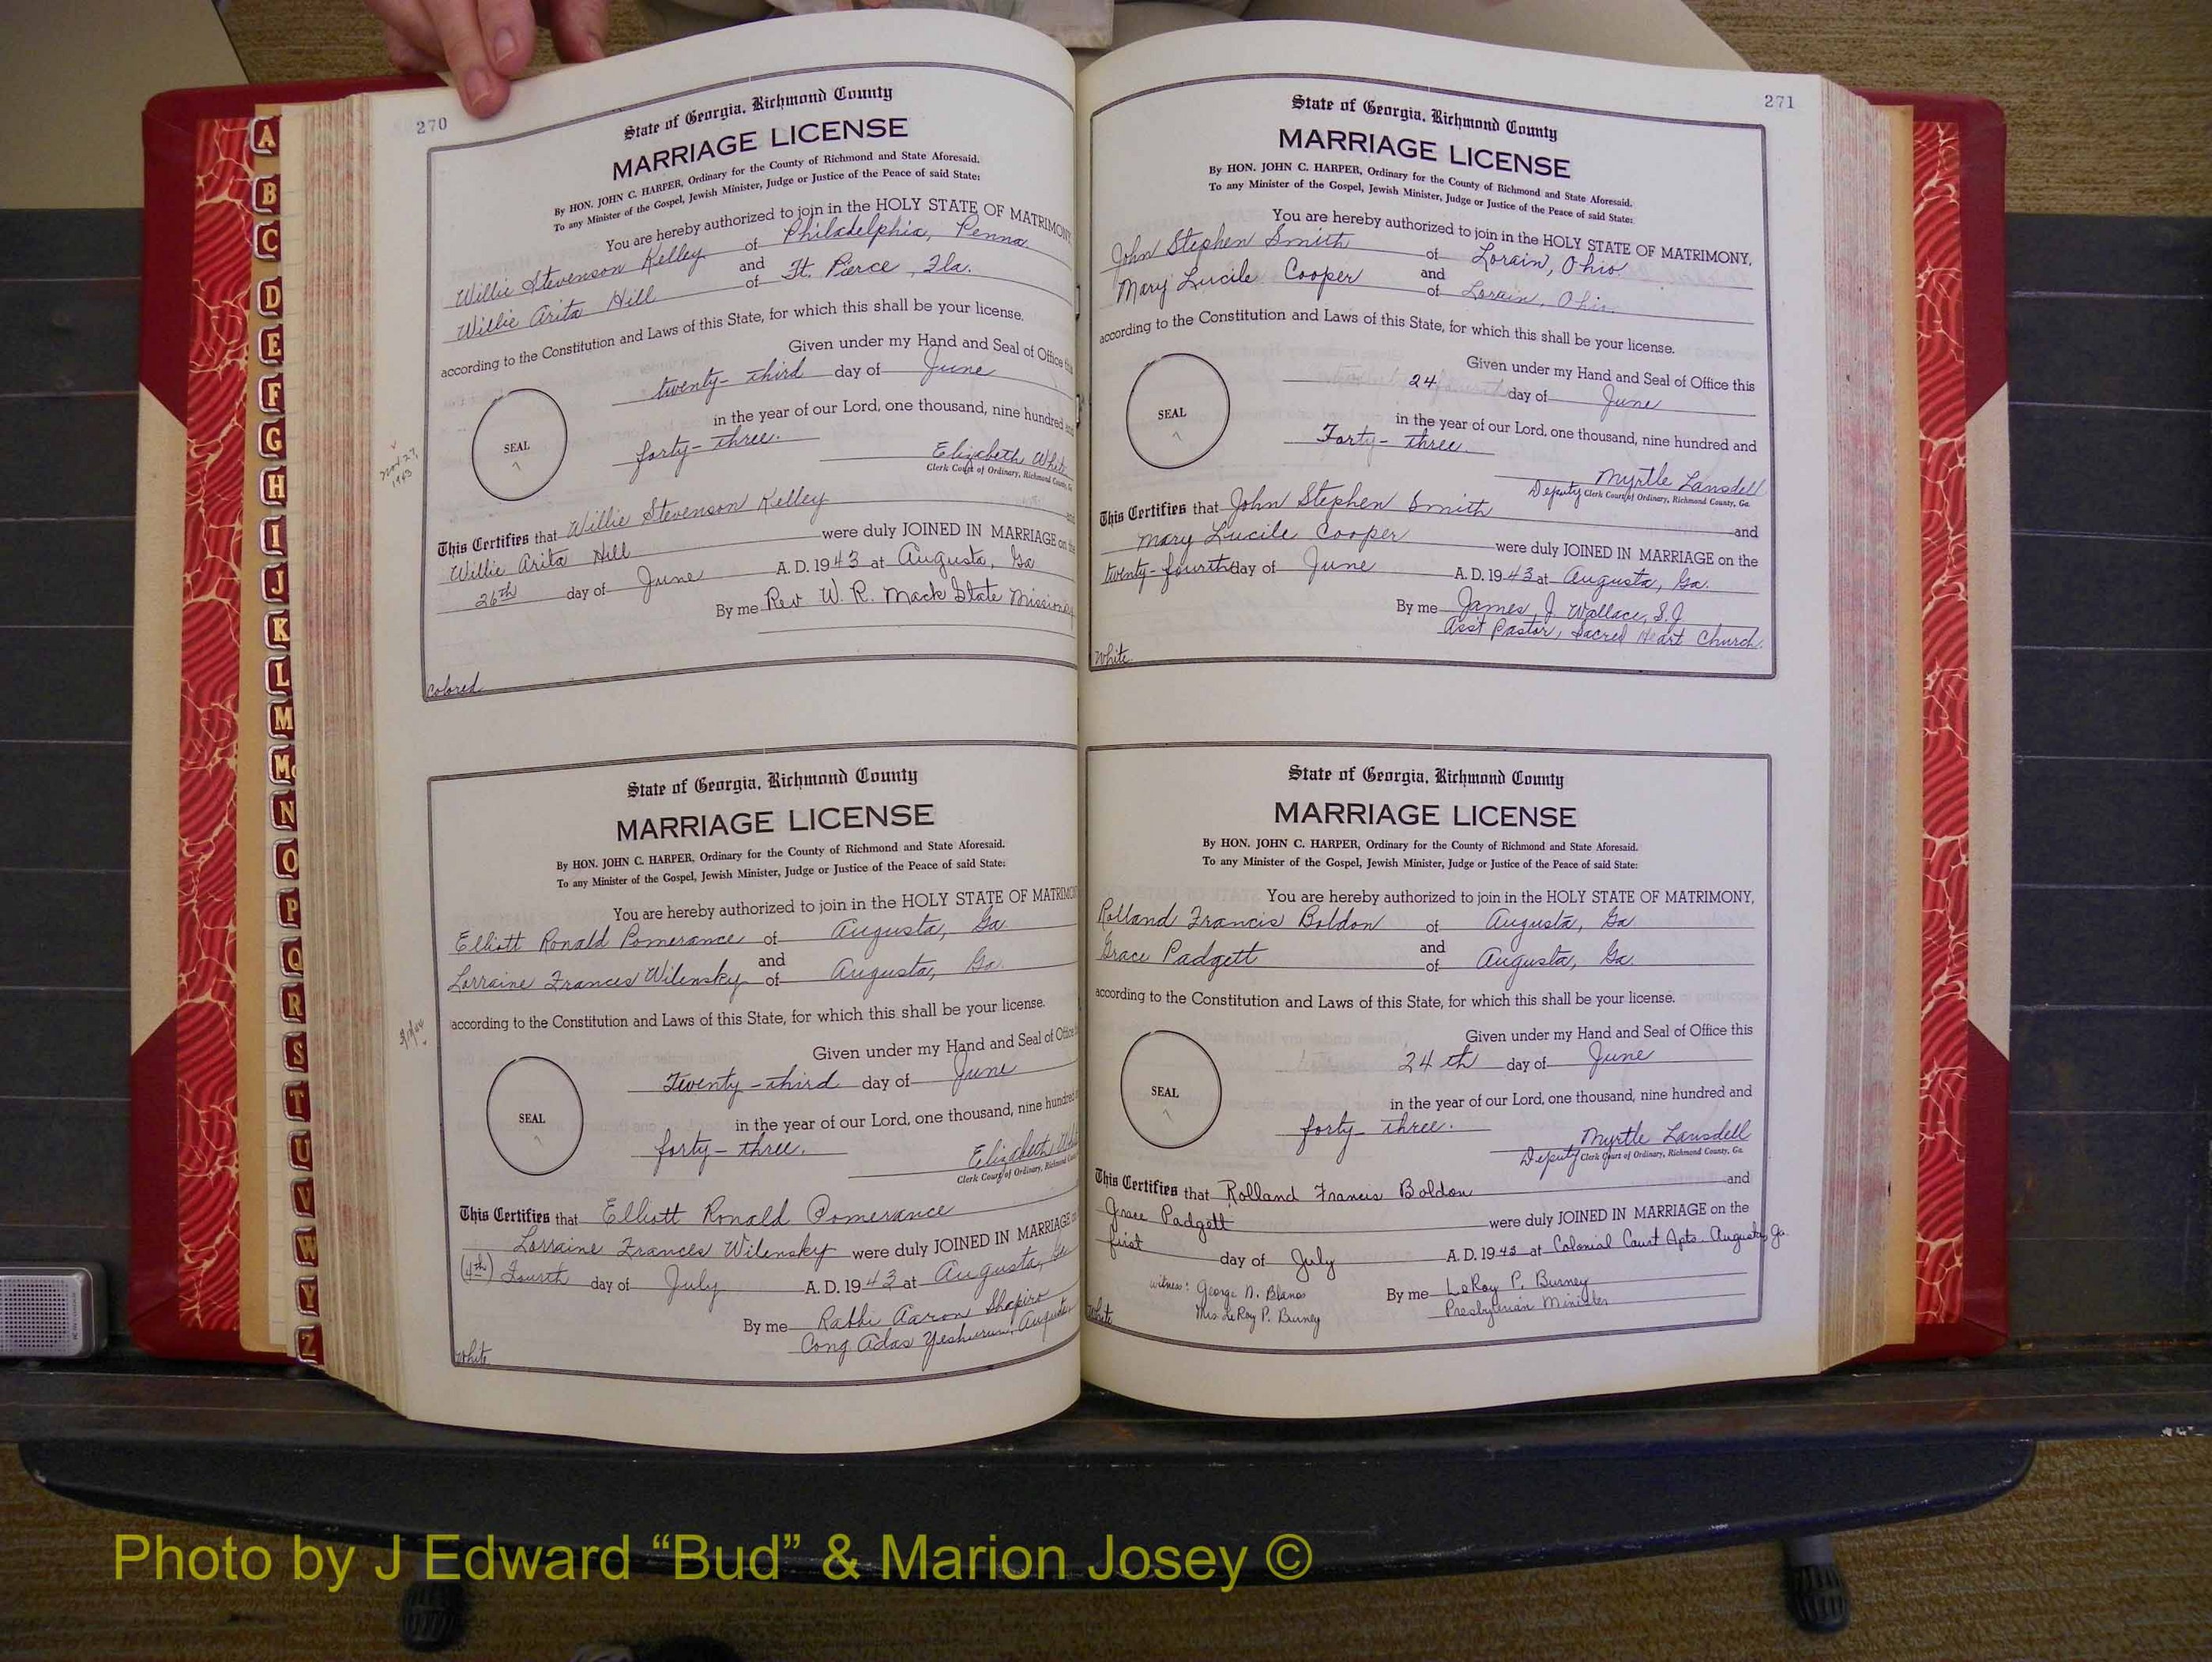 270
State of Georgia, Richmond County
MARRIAGE LICENSE
By HON. JOHN C. HARPER, Ordinary for the County of Richmond and State Aforesaid.
To any Minister of the Gospel, Jewish Minister, Judge or Justice of the Peace of said State:
You are hereby authorized to join in the HOLY STATE OF MATRIMONY
Willie Stevenson Kelley of Philadelphia, Penna
and
Willie Arita Hill of Ft. Pierce, Fla.
according to the Constitution and Laws of this State, for which this shall be your license.
Given under my Hand and Seal of Office this
twenty-third day of June
in the year of our Lord, one thousand, nine hundred and
forty-three.
SEAL
Elizabeth White
Clerk Court of Ordinary, Richmond County, Ga
Nov 27, 1943
This Certifies that Willie Stevenson Kelley and
Willie Arita Hill were duly JOINED IN MARRIAGE on the
26th day of June A. D. 1943 at Augusta, Ga
By me Rev W. R. Mack State Missionary
Colored
State of Georgia, Richmond County
MARRIAGE LICENSE
By HON. JOHN C. HARPER, Ordinary for the County of Richmond and State Aforesaid.
To any Minister of the Gospel, Jewish Minister, Judge or Justice of the Peace of said State:
You are hereby authorized to join in the HOLY STATE OF MATRIMO
Elliott Ronald Pomerance of Augusta, Ga
and
Lorraine Frances Wilensky of Augusta, Ga.
according to the Constitution and Laws of this State, for which this shall be your license.
Given under my Hand and Seal of Office
Twenty-third day of June
in the year of our Lord, one thousand, nine hundred
forty-three.
SEAL
Elizabeth Whi
Clerk Court of Ordinary, Richmond
This Certifies that Elliott Ronald Pomerance
Lorraine Frances Wilensky were duly JOINED IN MARRIAGE
(4th) Fourth day of July A. D. 1943 at Augusta, Ga
By me Rabbi Aaron Shapiro
Cong Adas Yeshurun, Augusta
White
271
State of Georgia, Richmond County
MARRIAGE LICENSE
By HON. JOHN C. HARPER, Ordinary for the County of Richmond and State Aforesaid.
To any Minister of the Gospel, Jewish Minister, Judge or Justice of the Peace of said State:
You are hereby authorized to join in the HOLY STATE OF MATRIMONY,
John Stephen Smith of Lorain, Ohio
and
Mary Lucile Cooper of Lorain, Ohio
according to the Constitution and Laws of this State, for which this shall be your license.
Given under my Hand and Seal of Office this
24 day of June
in the year of our Lord, one thousand, nine hundred and
Forty-three.
SEAL
Myrtle Lansdell
Deputy Clerk Court of Ordinary, Richmond County, Ga.
This Certifies that John Stephen Smith and
Mary Lucile Cooper were duly JOINED IN MARRIAGE on the
twenty-fourth day of June A. D. 1943 at Augusta, Ga.
By me James J. Wallace, S.J.
Asst Pastor, Sacred Heart Church.
White
State of Georgia, Richmond County
MARRIAGE LICENSE
By HON. JOHN C. HARPER, Ordinary for the County of Richmond and State Aforesaid.
To any Minister of the Gospel, Jewish Minister, Judge or Justice of the Peace of said State:
You are hereby authorized to join in the HOLY STATE OF MATRIMONY,
Rolland Francis Boldon of Augusta, Ga
and
Grace Padgett of Augusta, Ga.
according to the Constitution and Laws of this State, for which this shall be your license.
Given under my Hand and Seal of Office this
24th day of June
in the year of our Lord, one thousand, nine hundred and
forty-three.
SEAL
Myrtle Lansdell
Deputy Clerk Court of Ordinary, Richmond County, Ga.
This Certifies that Rolland Francis Boldon and
Grace Padgett were duly JOINED IN MARRIAGE on the
first day of July A. D. 1943 at Colonial Court Apts. Augusta, Ga.
witness: George N. Blanos
Mrs. LeRoy P. Burney
By me LeRoy P. Burney
Presbyterian Minister
White
A
B
C
D
E
F
G
H
I
J
K
L
M
Mc
N
O
P
Q
R
S
T
U
V
W
Y
Z
Photo by J Edward “Bud” & Marion Josey ©